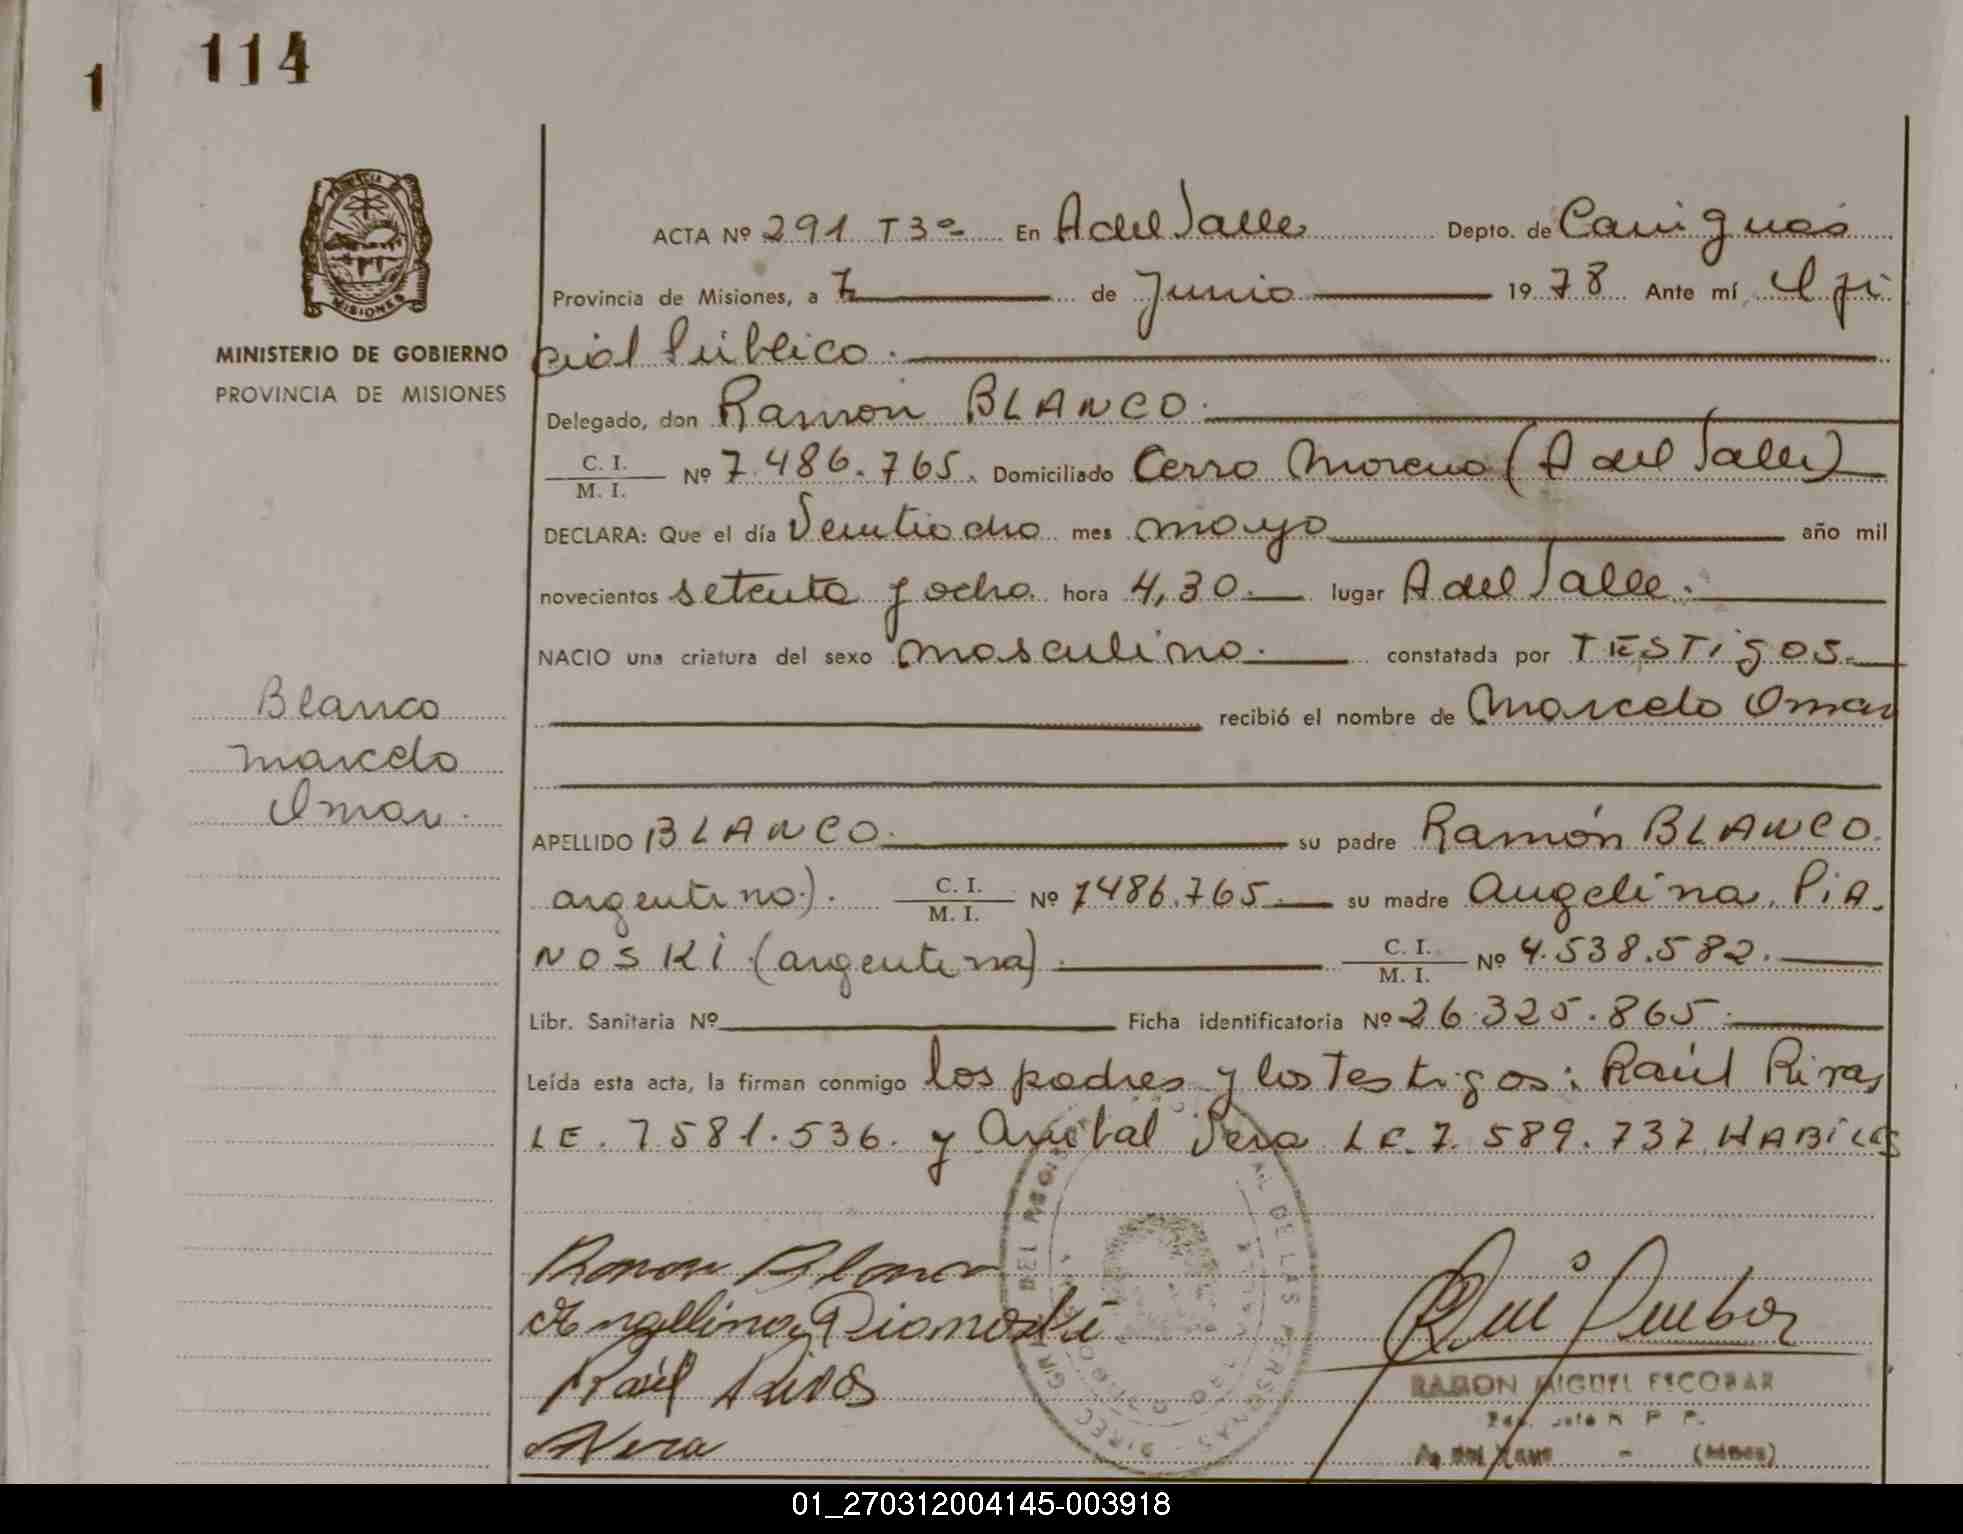 114
1
PROVINCIA DE
MISIONES
MINISTERIO DE GOBIERNO
PROVINCIA DE MISIONES
Blanco
Marcelo
Omar.
ACTA Nº 291 T3º En A del Valle Depto. de Cainguás
Provincia de Misiones, a 7 de Junio 1978 Ante mí, Ofi
cial Público.
Delegado, don Ramón BLANCO.
C. I.
M. I. Nº 7.486.765. Domiciliado Cerro Moreno (A del Valle)
DECLARA: Que el día Veintiocho mes mayo año mil
novecientos setenta y ocho hora 4,30. lugar A del Valle.
NACIO una criatura del sexo masculino. constatada por TESTigos.
recibió el nombre de Marcelo Omar
APELLIDO BLANCO. su padre Ramón BLANCO.
argentino). C. I.
M. I. Nº 7486.765. su madre Angelina PiA.
NOSKi (argentina). C. I.
M. I. Nº 4.538.582.
Libr. Sanitaria Nº Ficha identificatoria Nº 26.325.865.
Leída esta acta, la firman conmigo los padres y los Testigos: Raúl Rivas
LE. 7.581.536. y Anibal Vera LE. 7.589.737 HABiLES
Ramon Blanco
Angellina Pianoski
Raúl Rivas
AVera
DEL REGISTRO DE LAS PERSONAS - DIRECC
RAMON MIGUEL ESCOBAR
(Mnes)
01_270312004145-003918